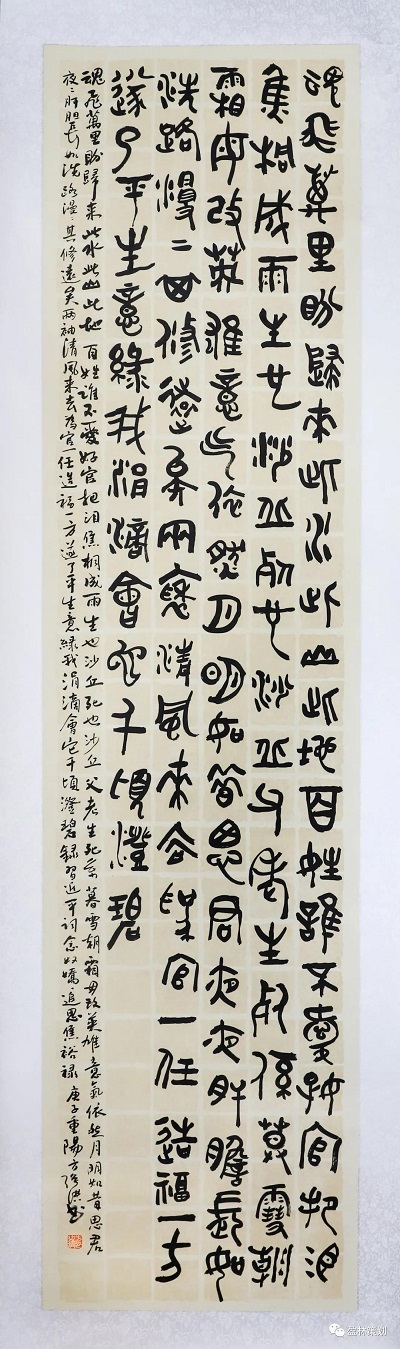 魂飛萬里盼歸來此水此山此地百姓誰不愛好官把淚
焦桐成雨生也沙丘死也沙丘父老生死係暮雪朝
霜毋改英雄意气依然月明如昔思君夜夜肝膽長如
洗路漫〻其修遠矣兩袖清風來去為官一任造福一方
遂了平生意綠我涓滴會它千頃澄碧
魂飛萬里盼歸来此水此山此地百姓誰不愛好官把泪焦桐成雨生也沙丘死也沙丘父老生死系暮雪朝霜毋改英雄意氣依然月明如昔思君
夜〻肝胆長如洗路漫〻其修遠矣两袖清風来去為官一任造福一方遂了平生意緑我涓滴會它千頃澄碧録習近平詞念奴嬌追思焦裕禄庚子重陽方